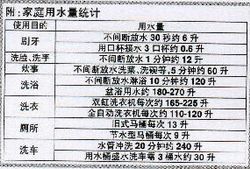 附:家庭用水量统计
使用目的 用水量
刷牙 不间断放水30秒约6升
用口杯接水3口杯约0.6升
洗脸、洗手 不间断放水1分钟约12升
炊事 不间断放水洗菜、洗碗等,5分钟约60升
洗浴 不间断放水淋浴10分钟约120升
盆浴用水约180-270升
洗衣 双缸洗衣机每次约165-225升
全自动洗衣机每次约110-120升
厕所 旧式马桶约13升
节水型马桶每次约9升
洗车 水管冲洗20分钟约240升
用水桶盛水洗车需3桶水约30升